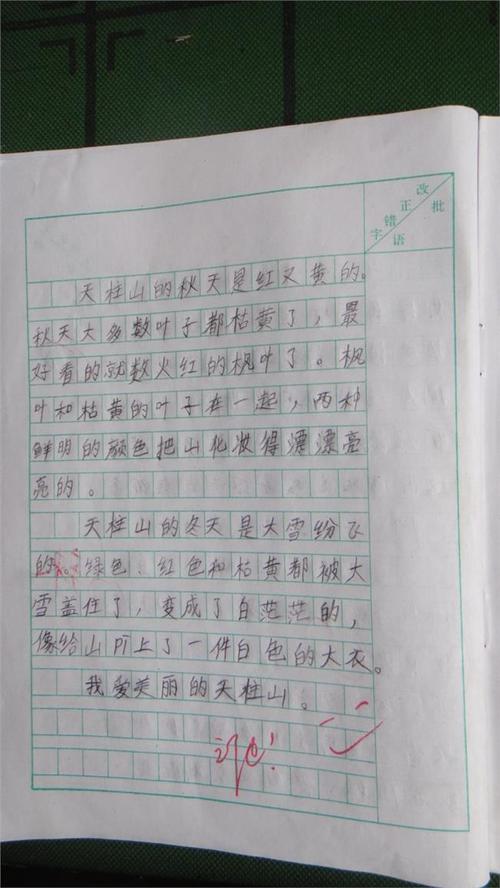 改正错字
批语
天柱山的秋天是红又黄的。
秋天大多数叶子都枯黄了，最
好看的就数火红的枫叶了。枫
叶和枯黄的叶子在一起，两种
鲜明的颜色把山化妆得漂漂亮
亮的。
天柱山的冬天是大雪纷飞
的。绿色 红色和枯黄都被大
雪盖住了，变成了白茫茫的，
像给山PI上了一件白色的大衣。
我爱美丽的天柱山。